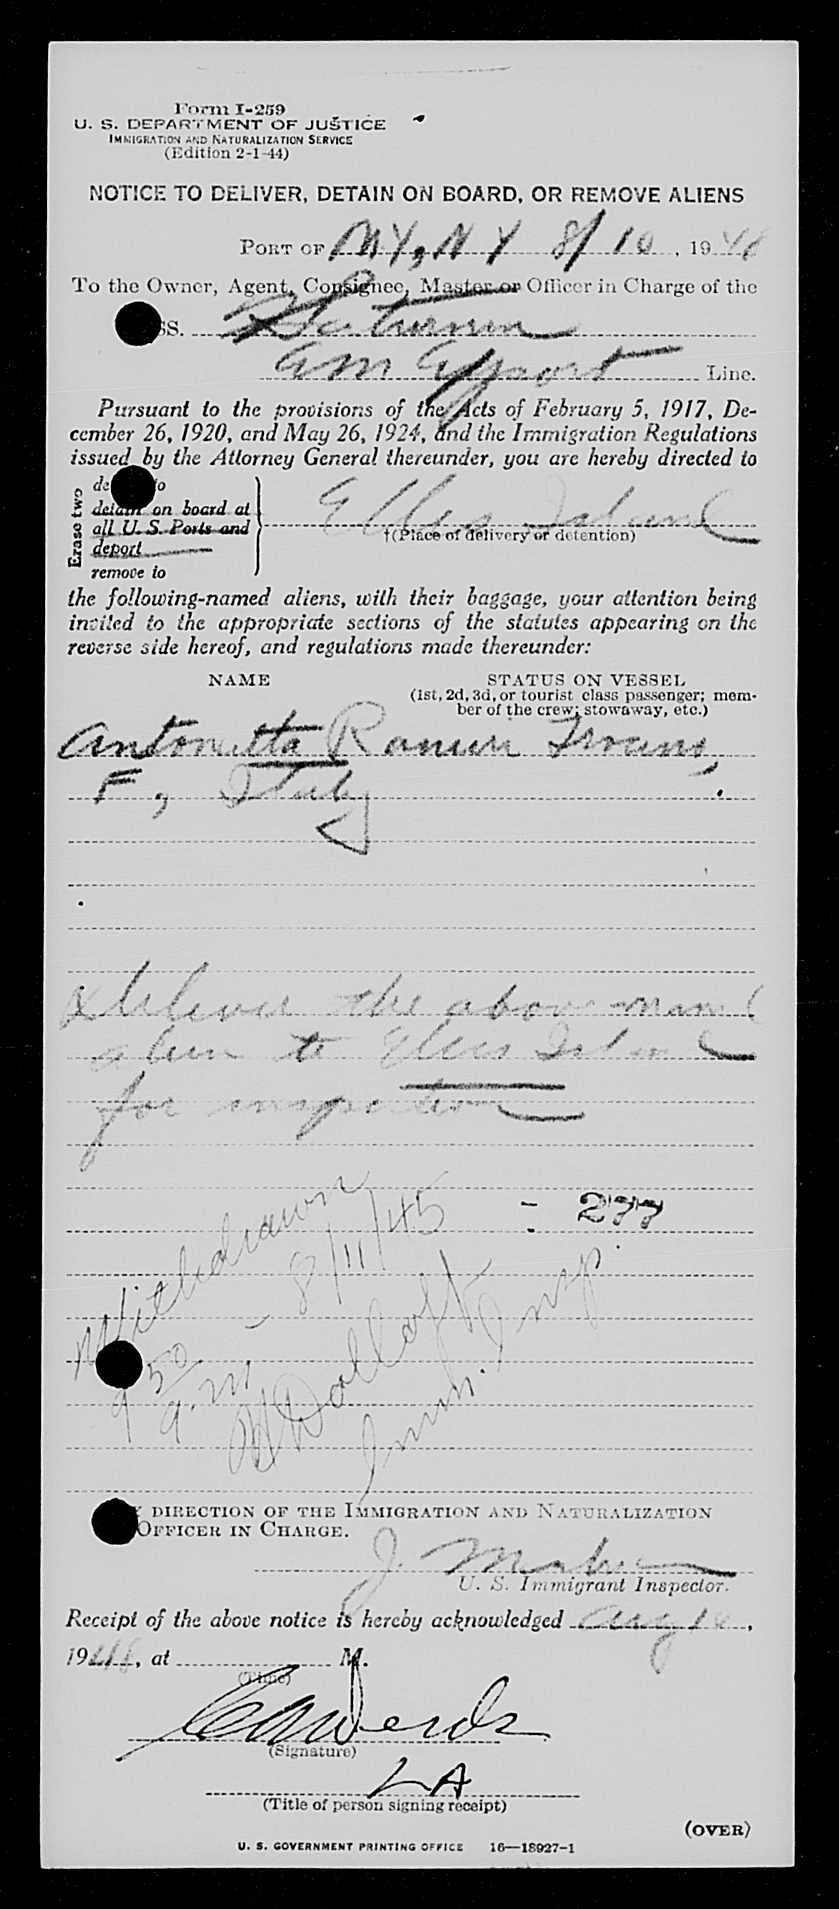 Form I-259
U. S. DEPARTMENT OF JUSTICE
IMMIGRATION AND NATURALIZATION SERVICE
(Edition 2-1-44)
NOTICE TO DELIVER, DETAIN ON BOARD, OR REMOVE ALIENS
PORT OF N.Y., N Y 8/10, 19
To the Owner, Agent, Consignee, Master or Officer in Charge of the
SS.
Am Export Line.
Pursuant to the provisions of the Acts of February 5, 1917, De-
cember 26, 1920, and May 26, 1924, and the Immigration Regulations
issued by the Attorney General thereunder, you are hereby directed to
Erase two
de to
detain on board at
all U. S. Ports and
deport
remove to
Ellis Island
†(Place of delivery or detention)
the following-named aliens, with their baggage, your attention being
invited to the appropriate sections of the statutes appearing on the
reverse side hereof, and regulations made thereunder:
NAME STATUS ON VESSEL
(1st, 2d, 3d, or tourist class passenger; mem-
ber of the crew; stowaway, etc.)
Antonetta
F, Italy
Deliver the above named
alien to Ellis Island
for inspection
- 277
Withdrawn
9 50 a.m - 8/11/45
Imm. Insp.
DIRECTION OF THE IMMIGRATION AND NATURALIZATION
OFFICER IN CHARGE.
J.
U. S. Immigrant Inspector.
Receipt of the above notice is hereby acknowledged Aug 10,
19, at M.
(Time)
(Signature)
LA
(Title of person signing receipt)
(OVER)
U. S. GOVERNMENT PRINTING OFFICE 16—18927-1